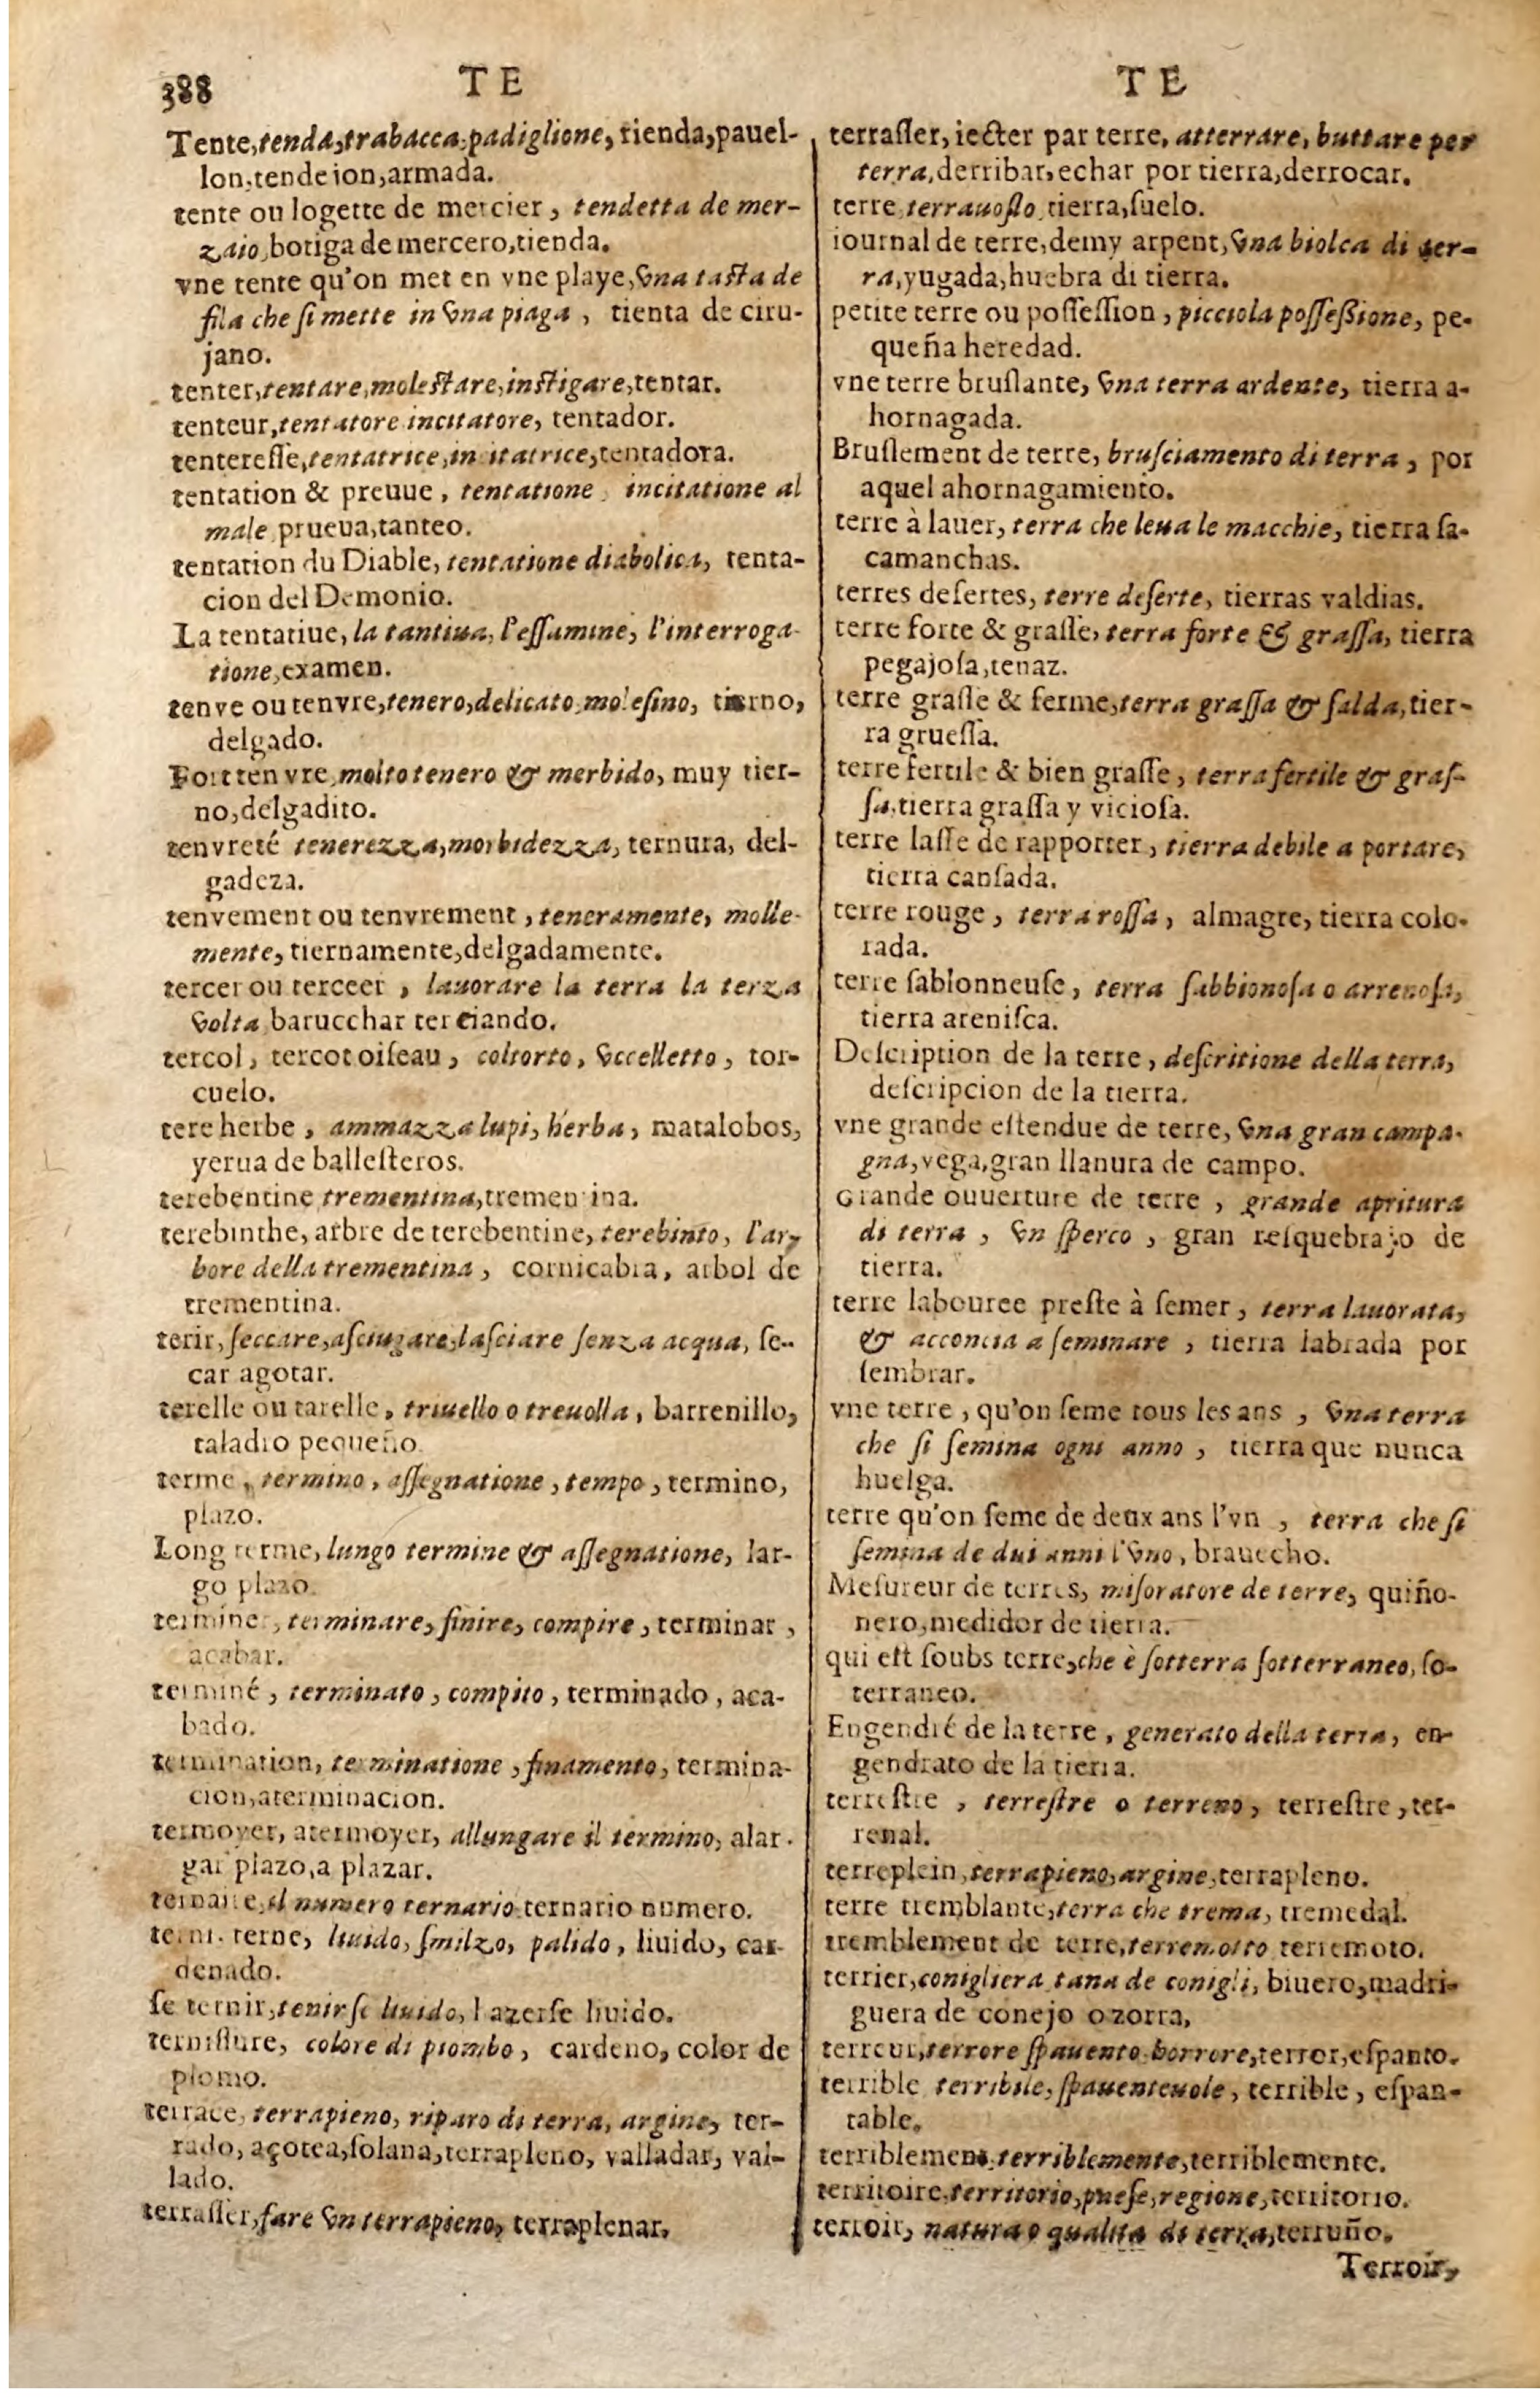 388
TE
TE
Tente,tenda,trabacca,padiglione, tienda,pauel-
lon,tendeion,armada.
tente ou logette de mercier, tendetta de mer-
zaio,botiga de mercero,tienda.
vne tente qu'on met en vne playe,vna tasta de
fila che ſi mette in vna piaga, tienta de ciru-
jano.
tenter,tentare,molestare,instigare,tentar.
tenteur,tentatore incitatore, tentador.
tentereſſe,tentatrice,incitatrice,tentadora.
tentation & preuue, tentatione, incitatione al
male prueua,tanteo.
tentation du Diable, tentatione diabolica, tenta-
cion del Demonio.
La tentatiue, la tantiua, l'eſſamine, l'interroga-
tione,examen.
tenve ou tenvre,tenero,delicato,moleſino, tierno,
delgado.
Fort tenvre,molto tenero & merbido, muy tier-
no,delgadito.
tenvreté tenerezza,morbidezza, ternura, del-
gadeza.
tenvement ou tenvrement, teneramente, molle-
mente, tiernamente,delgadamente.
tercer ou terceer, lauorare la terra la terza
volta barucchar terciando.
tercol, tercot oiſeau, coltorto, vccelletto, tor-
cuelo.
tere herbe, ammazza lupi, herba, matalobos,
yerua de balleſteros.
terebentine trementina,trementina.
terebinthe, arbre de terebentine, terebinto, l'ar-
bore della trementina, cornicabra, arbol de
trementina.
terir, ſeccare,aſciugare,laſciare ſenza acqua, ſe-
car agotar.
terelle ou tarelle, triuello o treuolla, barrenillo,
taladro pequeño.
terme, termino, aſſegnatione, tempo, termino,
plazo.
Long terme, lungo termine & aſſegnatione, lar-
go plazo.
terminer, terminare, finire, compire, terminar,
acabar.
terminé, terminato, compito, terminado, aca-
bado.
termination, terminatione, finamento, termina-
cion,aterminacion.
termoyer, atermoyer, allungare il termino, alar-
gar plazo,a plazar.
ternaire,il numero ternario ternario numero.
terni. terne, liuido, ſmilzo, palido, liuido, car-
denado.
ſe ternir,tenirſe liuido, hazerſe liuido.
terniſſure, colore di piombo, cardeno, color de
plomo.
terrace, terrapieno, riparo di terra, argine, ter-
rado, açotea,ſolana,terrapleno, valladar, val-
lado.
terraſſer,fare vn terrapieno, terraplenar.
terraſſer, iecter par terre, atterrare, buttare per
terra,derribar,echar por tierra,derrocar.
terre,terrauoſlo,tierra,ſuelo.
iournal de terre,demy arpent,vna biolca di ter-
ra,yugada,huebra di tierra.
petite terre ou poſſeſſion, picciola poſſeſſione, pe-
queña heredad.
vne terre bruſlante, vna terra ardente, tierra a-
hornagada.
Bruſlement de terre, bruſciamento di terra, por
aquel ahornagamiento.
terre à lauer, terra che leua le macchie, tierra ſa-
camanchas.
terres deſertes, terre deſerte, tierras valdias.
terre forte & graſſe, terra forte & graſſa, tierra
pegajoſa,tenaz.
terre graſſe & ferme,terra graſſa & ſalda,tier-
ra grueſſa.
terre fertile & bien graſſe, terra fertile & graſ-
ſa,tierra graſſa y vicioſa.
terre laſſe de rapporter, tierra debile a portare,
tierra canſada.
terre rouge, terra roſſa, almagre, tierra colo-
rada.
terre ſablonneuſe, terra ſabbionoſa o arrenoſa,
tierra areniſca.
Deſcription de la terre, deſcritione della terra,
deſcripcion de la tierra.
vne grande eſtendue de terre, vna gran campa-
gna,vega,gran llanura de campo.
Grande ouuerture de terre, grande apritura
di terra, vn ſperco, gran reſquebrajo de
tierra.
terre labouree preſte à ſemer, terra lauorata,
& acconcia a ſeminare, tierra labrada por
ſembrar.
vne terre, qu'on ſeme tous les ans, vna terra
che ſi ſemina ogni anno, tierra que nunca
huelga.
terre qu'on ſeme de deux ans l'vn, terra che ſi
ſemina de dui anni l'vno, brauecho.
Meſureur de terres, miſoratore de terre, quiño-
nero,medidor de tierra.
qui eſt ſoubs terre,che è ſotterra ſotterraneo, ſo-
terraneo.
Engendré de la terre, generato della terra, en-
gendrato de la tierra.
terreſtre, terreſtre o terreno, terreſtre, ter-
renal.
terreplein,terrapieno,argine,terrapleno.
terre tremblante,terra che trema, tremedal.
tremblement de terre,terremotto terremoto.
terrier,conigliera tana de conigli, biuero,madri-
guera de conejo o zorra,
terreur,terrore ſpauento horrore,terror,eſpanto.
terrible terribile, ſpauenteuole, terrible, eſpan-
table.
terriblement,terriblemente,terriblemente.
territoire,territorio,pueſe,regione,territorio.
terroir, natura o qualita di terra,terruño.
Terroir,